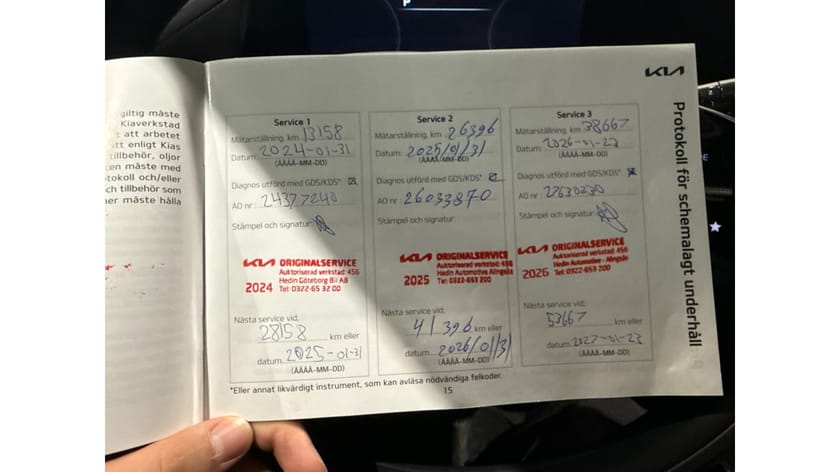 P
giltig måste
Kiaverkstad
att arbetet
tt enligt Kias
tillbehör, oljor
en måste med
tokoll och/eller
ch tillbehör som
ner måste hålla
KIA
Protokoll för schemalagt underhåll
Service 1
Mätarställning, km 13158
Datum: 2024-01-31
(ÅÅÅÅ-MM-DD)
Diagnos utförd med GDS/KDS*
AO nr: 24377240
Stämpel och signatur:
KIA ORIGINALSERVICE
Auktoriserad verkstad: 456
Hedin Göteborg Bil AB
2024 Tel: 0322-65 32 00
Nästa service vid:
28158 km eller
datum 2025-01-31
(ÅÅÅÅ-MM-DD)
Service 2
Mätarställning, km 26396
Datum: 2025/01/31
(ÅÅÅÅ-MM-DD)
Diagnos utförd med GDS/KDS*
AO nr: 26033870
Stämpel och signatur:
KIA ORIGINALSERVICE
Auktoriserad verkstad: 456
Hedin Automotive Alingsås
2025 Tel: 0322-653 200
Nästa service vid:
41396 km eller
datum 2026/01/31
(ÅÅÅÅ-MM-DD)
Service 3
Mätarställning, km 38667
Datum: 2026-01-23
(ÅÅÅÅ-MM-DD)
Diagnos utförd med GDS/KDS*
AO nr:
Stämpel och signatur:
KIA ORIGINALSERVICE
Auktoriserad verkstad: 456
Hedin Automotive - Alingsås
2026 Tel: 0322-653 200
Nästa service vid:
53667 km eller
datum 2027-01-23
(ÅÅÅÅ-MM-DD)
*Eller annat likvärdigt instrument, som kan avläsa nödvändiga felkoder.
15